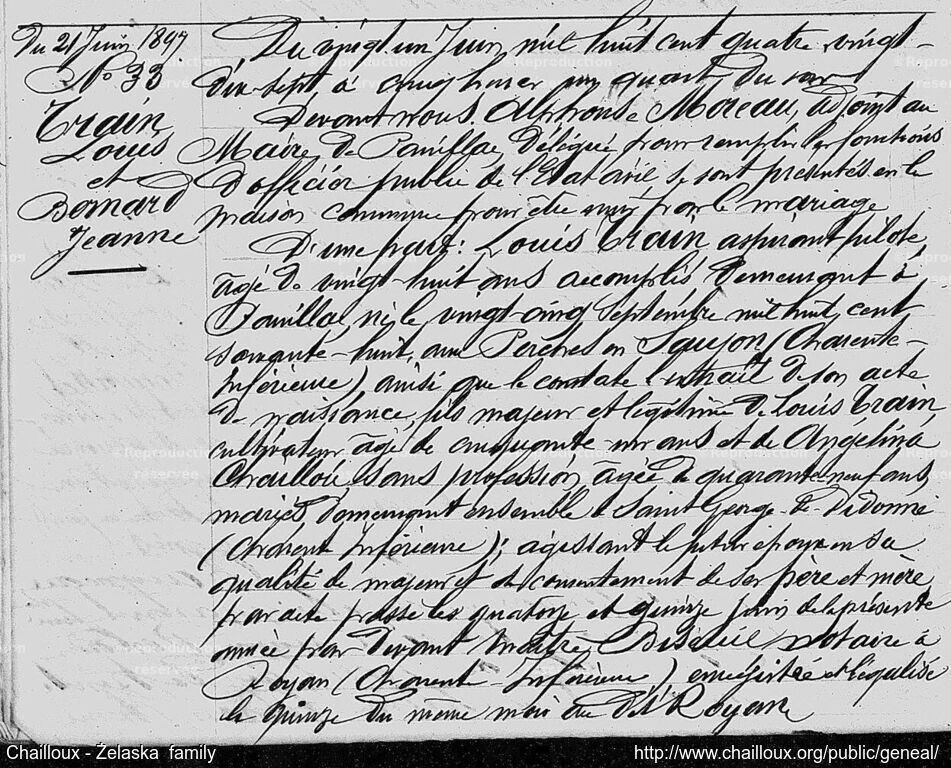 Du 21 Juin 1897
N° 33
Train
Louis
et
Bernard
Jeanne
Du vingt un Juin mil huit cent quatre vingt-
dix-sept à cinq heures un quart du soir
Devant nous Alphonse Moreau, adjoint au
Maire de Pauillac Délégué pour remplir les fonctions
D'officier public de l'Etat civil se sont présentés en la
maison commune pour être unis par le mariage
D'une part: Louis Train aspirant pilote,
âgé de vingt-huit ans accomplis demeurant à
Pauillac, né le vingt-cinq Septembre mil huit cent
soixante-huit, aux Perches en Saujon (Charente-
Inférieure), ainsi que le constate l'extrait de son acte
de naissance, fils majeur et légitime de Louis Train,
cultivateur âgé de cinquante-un ans et de Angelina
Chaillou sans profession âgée de quarante-neuf ans
mariés, demeurant ensemble à Saint George-de-Didonne
(Charente Inférieure); agissant le futur époux en sa
qualité de majeur et du consentement de ses père et mère
par acte passé les quatorze et quinze Juin de la présente
année par devant Maître notaire à
Royan (Charente-Inférieure) enregistré et légalisé
le quinze du même mois au dit Royan
Chailloux - Želaska family
http://www.chailloux.org/public/geneal/